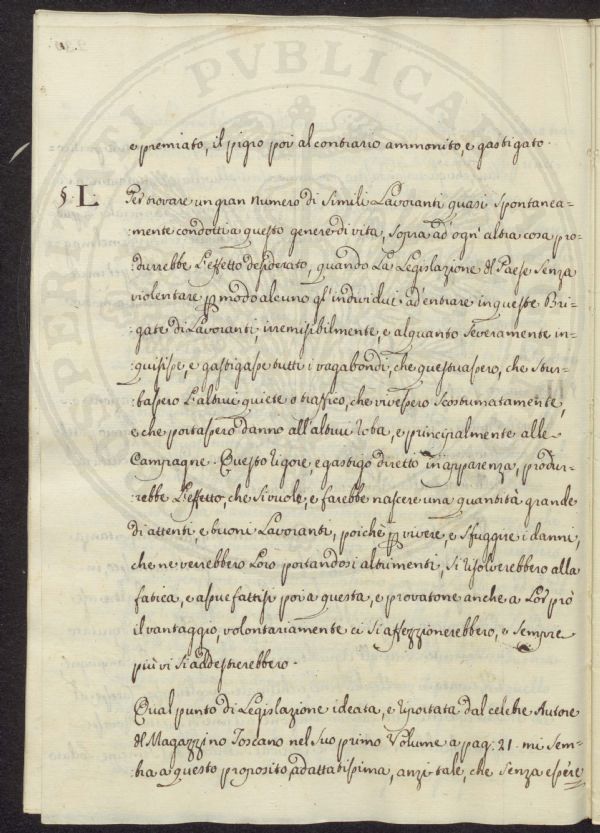 e premiato, il pigro poi al contrario ammonito, e gastigato.
§. L. Per trovare un gran numero di Simili Lavoranti quasi spontanea=
=mente condotti a questo genere di vita, sopra ad' ogn' altra cosa pro=
=durrebbe L'effetto desiderato, quando La Legislazione del Paese senza
violentare p modo alcuno gl' individui ad' entrare in queste Bri=
=gate di Lavoranti, irremisibilmente, e alquanto severamente in=
=quisisse, e gastigasse tutti i vagabondi, che questuassero, che stur=
=bassero L'altrui quiete o traffico, che vivessero scostumatamente,
e che portassero danno all' altrui roba, e principalmente alle
Campagne. Questo rigore, e gastigo diretto in apparenza, produr=
=rebbe L'effetto, che si vuole, e farebbe nascere una quantità grande
di attenti e buoni Lavoranti, poiché p vivere, e sfuggire i danni,
che ne verebbero Loro portandosi altrimenti, si risolverebbero alla
fatica, e assuefattisi poi a questa, e provatone anche a Lor prò
il vantaggio, volontariamente ci si affezzionerebbero, e sempre
più vi si addestrerebbero.
Qual punto di Legislazione ideata, e riportata dal celebre Autore
del Magazzino Toscano nel suo primo Volume a pag: 21. mi sem=
=bra a questo proposito adattatissima, anzi tale, che senza essere